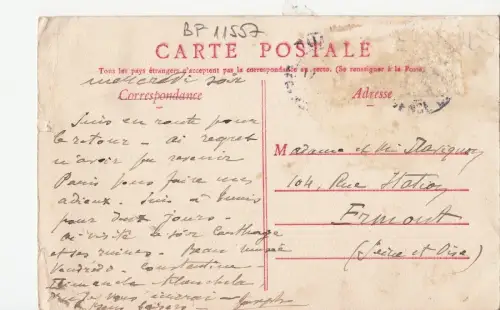 BP 11557
CARTE POSTALE
Tous les pays étrangers n'acceptent pas la correspondance au verso. (Se renseigner à la Poste)
mercredi soir
Correspondance
Adresse
Suis en route pour
le retour - ai regret
n'avoir pu revenir
Paris pour faire mes
adieux. Suis à Tunis
pour deux jours.
ai visité le soir Carthage
et ses ruines. Beau
Vendredi Constantine
Dimanche
vous
Joseph
Madame et Mr
104, Rue Station
Ermont
(Seine et Oise)